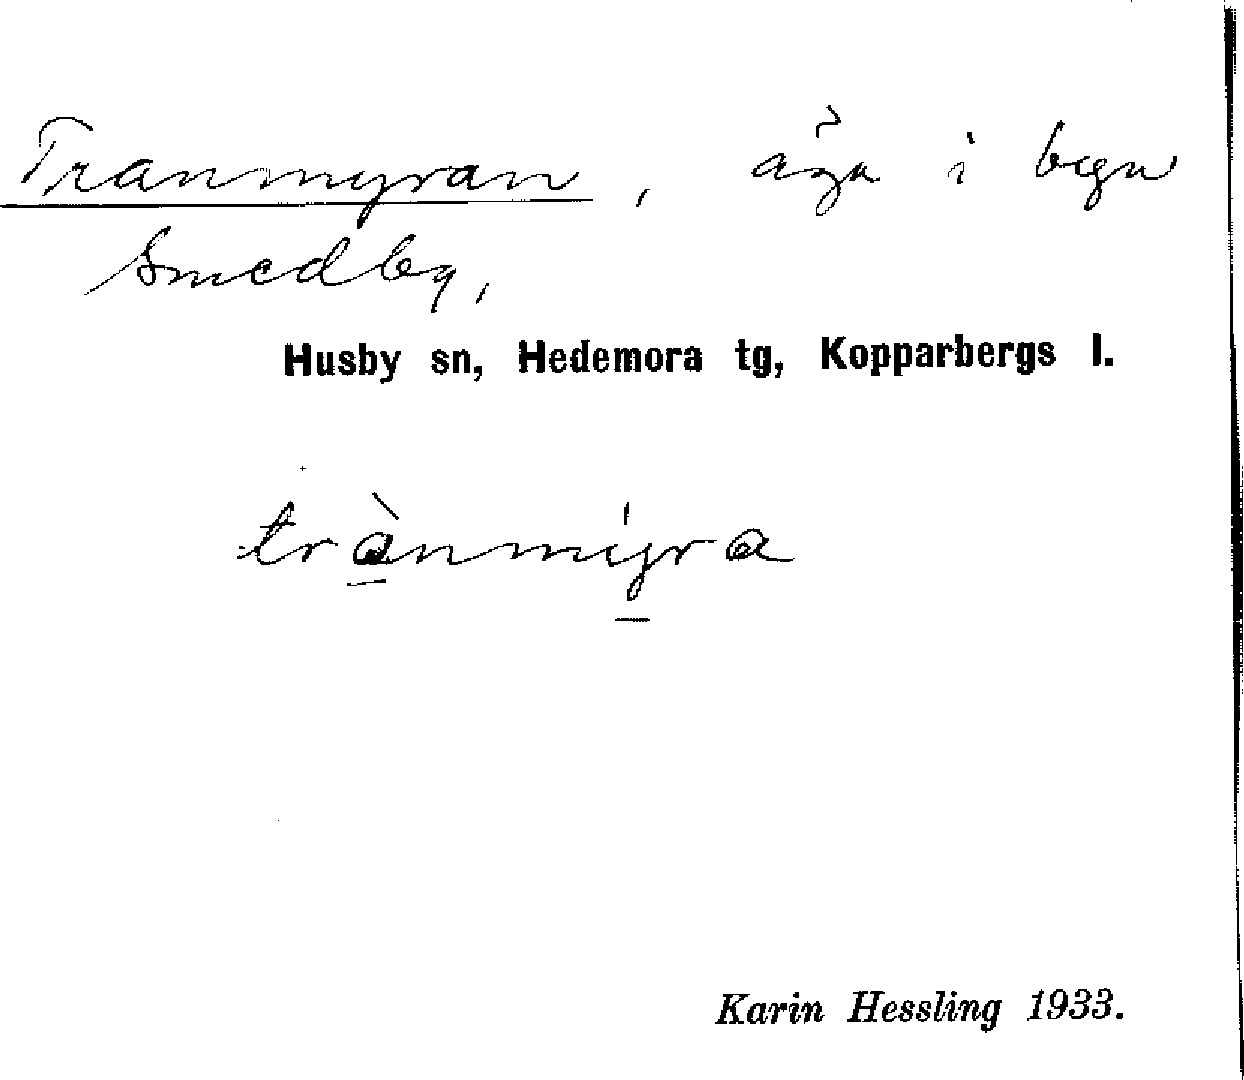 Tranmyran, äga i byn
Smedby,
Husby sn, Hedemora tg, Kopparbergs l.
trànmýra
Karin Hessling 1933.